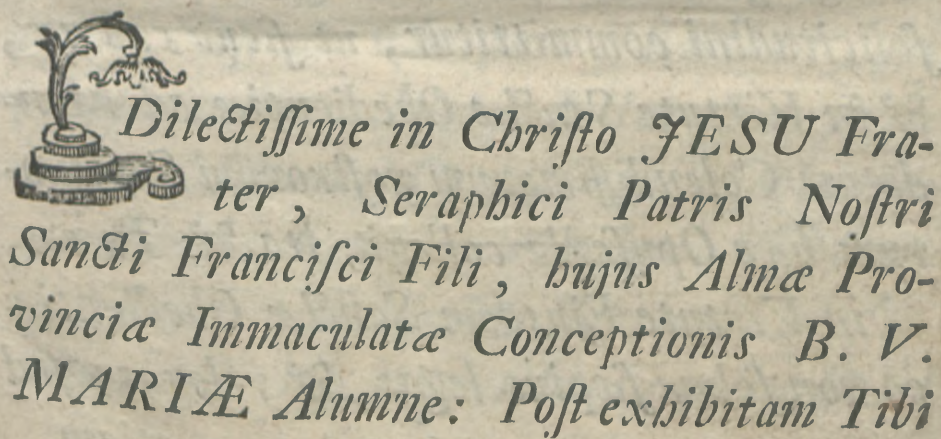 Dilectiſſime in Chriſto JESU Fra-
ter, Seraphici Patris Noſtri
Sancti Franciſci Fili, hujus Almæ Pro-
vinciæ Immaculatæ Conceptionis B. V.
MARIÆ Alumne: Poſt exhibitam Tibi